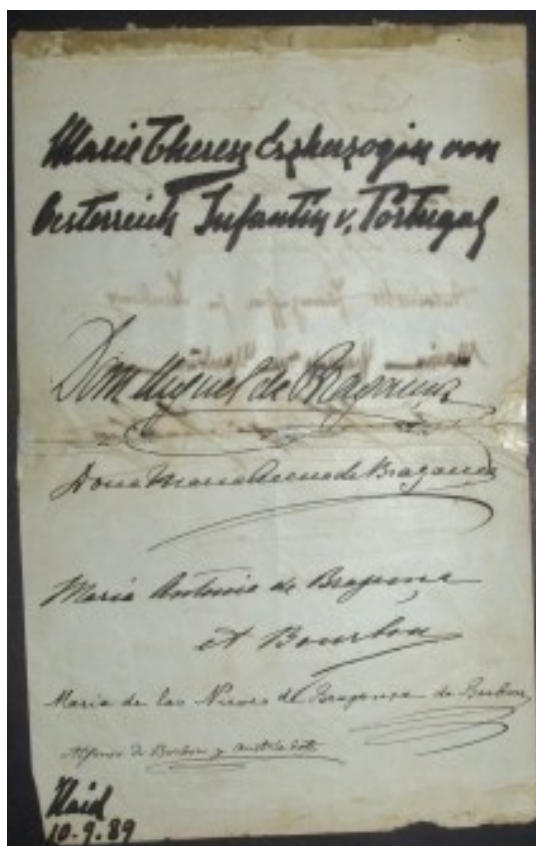 Marie Therese Erzherzogin von
Oesterreich Infantin v. Portugal
Dom Miguel de Bragança
Dona Maria Anna de Bragança
Maria Antonia de Bragança
et Bourbon
Maria de las Nieves de Braganza de Borbon
Alfonso de Borbon y Austria Este
Haid
10-9.89